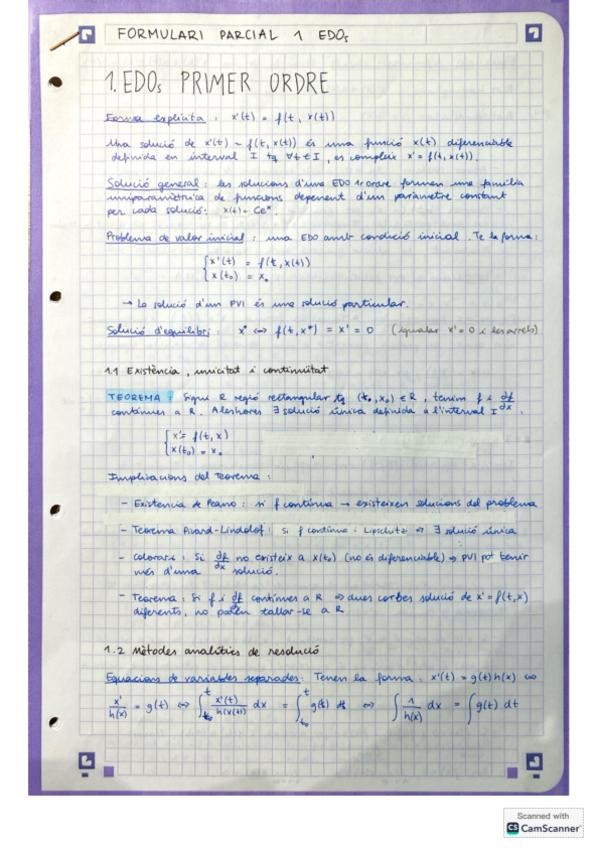 FORMULARI PARCIAL 1 EDOs
1. EDOs PRIMER ORDRE
Forma explícita : x'(t) = f(t, x(t))
Una solució de x'(t) = f(t, x(t)) és una funció x(t) diferenciable
definida en interval I tq ∀t∈I, es compleix x' = f(t, x(t)).
Solució general : les solucions d'una EDO 1r ordre formen una família
uniparamètrica de funcions depenent d'un paràmetre constant
per cada solució: x(t) = Ceᵅ.
Problema de valor inicial : una EDO amb condició inicial. Té la forma:
{ x'(t) = f(t, x(t))
x(t₀) = x₀
→ La solució d'un PVI és una solució particular.
Solució d'equilibri : x* ⇔ f(t, x*) = x' = 0 (igualar x' = 0 i les arrels)
1.1 Existència, unicitat i continuïtat
TEOREMA : Sigui R regió rectangular tq (t₀, x₀) ∈ R, tenim f i ∂f/∂x
contínues a R. Aleshores ∃ solució única definida a l'interval I.
{ x' = f(t, x)
x(t₀) = x₀
Implicacions del Teorema :
- Existencia de Peano : si f contínua → existeixen solucions del problema
- Teorema Picard-Lindelöf : si f contínua i Lipschitz ⇒ ∃ solució única
- Colorari : Si ∂f/∂x no existeix a x(t₀) (no és diferenciable) ⇒ PVI pot tenir
més d'una solució.
- Teorema : Si f i ∂f/∂x contínues a R ⇒ dues corbes solució de x' = f(t, x)
diferents, no poden tallar-se a R
1.2 Mètodes analítics de resolució
Equacions de variables separades: Tenen la forma : x'(t) = g(t)h(x) ⇔
x'/h(x) = g(t) ⇔ ∫ₜ₀ᵗ x'(t)/h(x(t)) dx = ∫ₜ₀ᵗ g(t) dt ⇔ ∫ 1/h(x) dx = ∫ g(t) dt
Scanned with
CS CamScanner